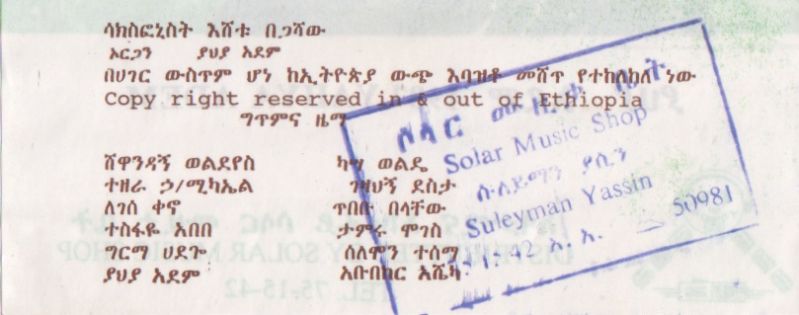 ሳክስፎኒስት እሸቱ በጋሻው
ኦርጋን ያህያ አደም
በሀገር ውስጥም ሆነ ከኢትዮጵያ ውጭ አባዝቶ መሸጥ የተከለከለ ነው
Copy right reserved in & out of Ethiopia
ግጥምና ዜማ
ሸዋንዳኝ ወልደየስ ካሣ ወልዴ
ተዘራ ኃ/ሚካኤል ገዛህኝ ደስታ
ለገሰ ቀኖ ጥበቡ በላቸው
ተስፋዬ አበበ ታምሩ ሞገስ
ግርማ ሀደጉ ሰለሞን ተሰማ
ያህያ አደም አቡበከር አሼካ
ሶላር ሙዚቃ ቤት
Solar Music Shop
ሱሌይማን ያሲን
Suleyman Yassin
42 አ. አ. 50981
DISTRIBUTED BY SOLAR MUSIC SHOP
TEL. 75-15-42